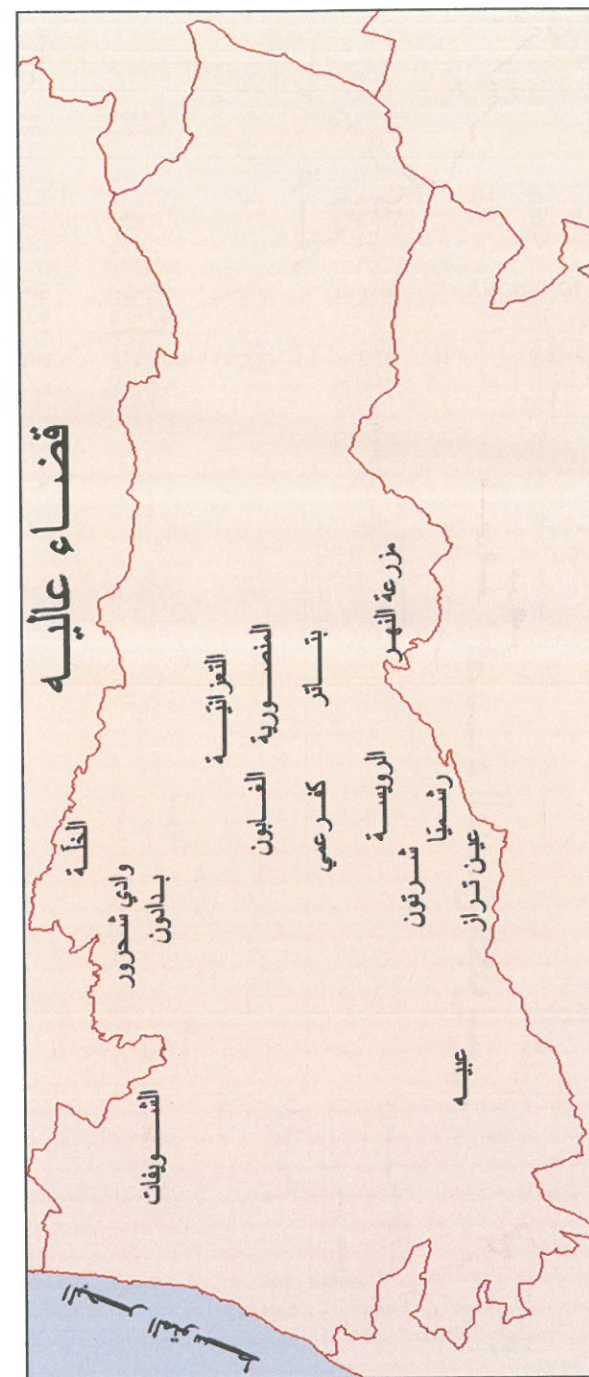 قضاء عاليه
الخلّة
وادي شحرور
بدادون
الشويفات
التعزانيّة
المنصورية
الغابون
بتاتر
كفرعمي
مزرعة النهر
الرويسة
شرتون
رشميّا
عين تراز
عبيه
البحر المتوسط